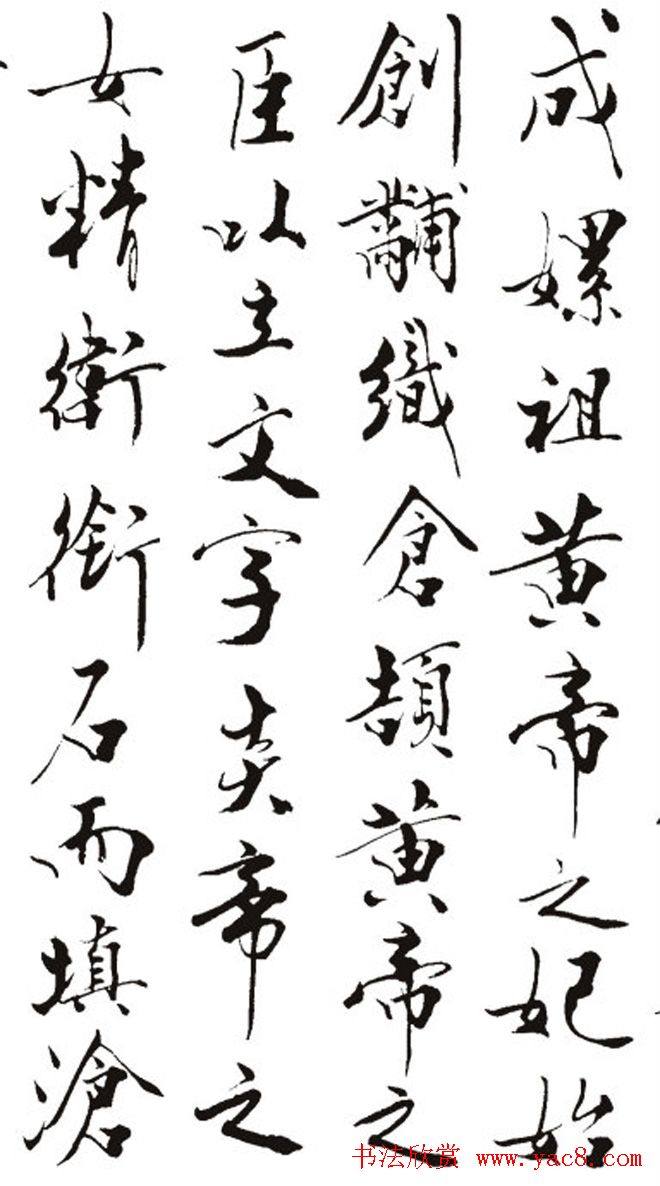 成嫘祖黄帝之妃始
創黼織倉頡黄帝之
臣以立文字炎帝之
女精衛銜石而填滄
书法欣赏 www.yac8.com